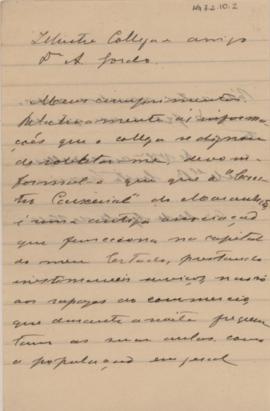 1972.10.2
Illustre Collega e amigo
Dr. A Gordo
Meus cumprimentos
Relativamente ás informa-
ções que o collega se dignou
de solicitar-me, devo in-
formal-o que o "Cen-
tro Caixeiral" do Maranhão
é uma antiga associação
que funcciona na capital
do meu Estado, prestando
inestimaveis serviços, não só
aos rapazes do commercio,
que durante a noite frequen-
tam as suas aulas, como
a população em geral